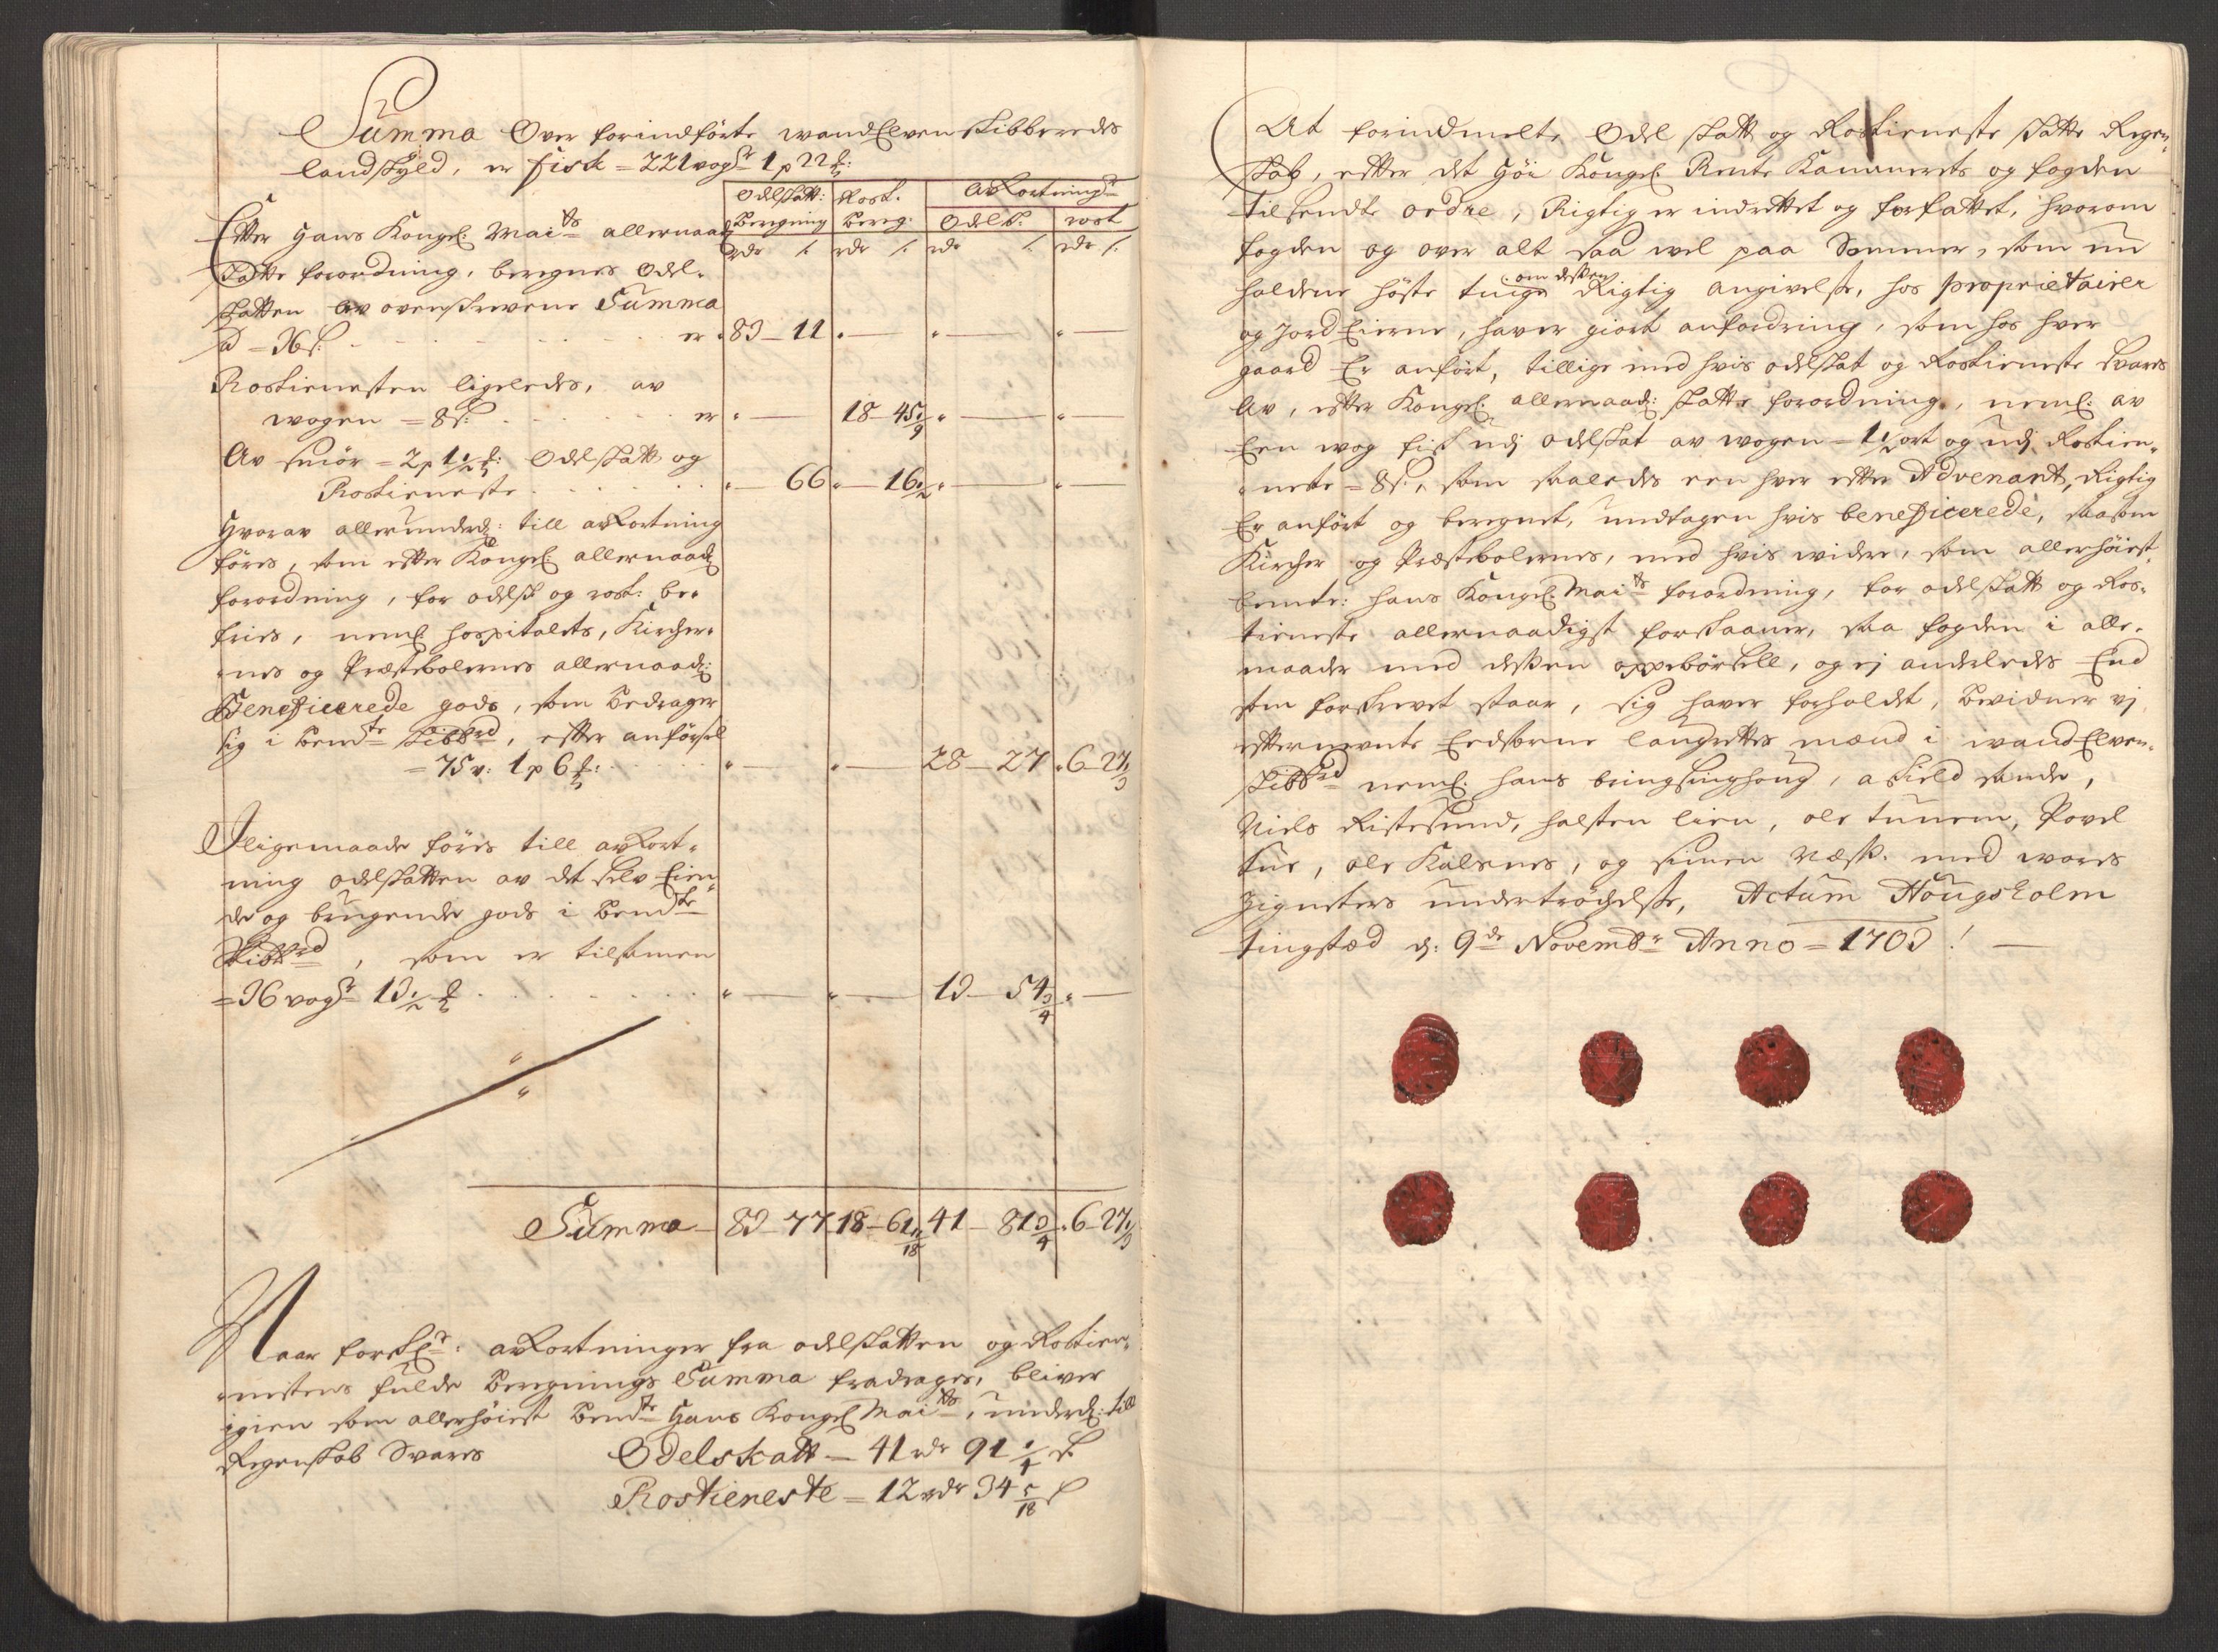 Summa Over forindförte wandElven skibberedes
landskyld, er fisk = 221 vogr 1 p 22 ℔:
Odelskatt: Rost. Avkortningr
beregning bereg: Odels: rost
rdr s. rdr s. rdr s. rdr s.
Efter Hans Kongel: Maits allernaad:
Skatte forordning, beregnes Odel-
skatten av ovenskrevene Summa
a = 36 s: er 83 - 11
Rostienesten ligeledes, av
wogen = 8 s: er 18 45 1/9
Av smör = 2 p 1 1/2 ℔: Odelskatt og
Rostieneste 66 16 1/2
Hvorav allerunderd: till avkortning
föres, som efter Kongel: allernaad:
forordning, for odelsk: og rost: be-
fries, neml: hospitalets, Kircher-
nes og Præstebolernes allernaad:
Beneficerede gods, som bedrager
sig i bemte skibbrd, efter anförsel
= 75 v: 1 p 6 ℔: 28 - 27 6 - 27 1/3
Iligemaade föres till avkort-
ning odelskatten av det selv Eien-
de og brugende gods i bemte
Skibbrd, som er tilsamen
= 36 vogr 13 1/2 ℔ 13 - 54 3/4
Summa 83 - 77 18 - 61 11/18 41 - 81 3/4 6 - 27 1/3
Naar forskr: avkortninger fra odelskatten og Rostien-
nestens fulde beregnings Summa fradrages, bliver
igien som allerhöiest bemte Hans Kongel Maits, underd: till
Regenskab Svares Odelskatt = 41 rdr 91 1/4 s
Rostieneste = 12 rdr 34 5/18 s
At forindmelte Odel skatt og Rostieneste skatte Regen-
skab, efter det Höi Kongel: Rente Kammerets og fogden
tilsendte ordre, Rigtig er indrettet og forfattet, hvorom
fogden og over alt saa wel paa Sommer, som nu
holdene höste tinge om desken Rigtig angivelse, hos proprietairer
og JordEierne, haver giort anfordring, som hos hver
gaard Er anfört, tillige med hvis odelskat og Rostieneste Svares
Av, efter Kongel: allernaad: skatte forordning, neml: av
Een wog fisk udj odelskat av wogen = 1 1/2 ort og udj Rostien-
neste = 8 s:, som saaledes een hver efter Advenant, Rigtig
Er anfört og beregnet, undtagen hvis beneficerede, saasom
Kircher og Præstebolernes, med hvis widre, som allerhöiest
bemte: hans Kongel: Maits forordning, for odelskatt og Ros-
tieneste allernaadigst forskaaner, saa fogden i alle
maader med desken oppebörsell, og ej anderledes End
som forskrevet staar, sig haver forholdet, bevidner vj
efternevnte Eedsorne laugrettes mænd i wandElven
skibbrd neml: hans bringsinghoug, askield sande,
Niels Ristesund, halsten lien, ole tunem, Povel
, ole Kalsnes, og simen Næss. med wores
Zigneters undertröchelse, Actum Hougsholm
tingsted d: 9de Novembr Anno = 1703!